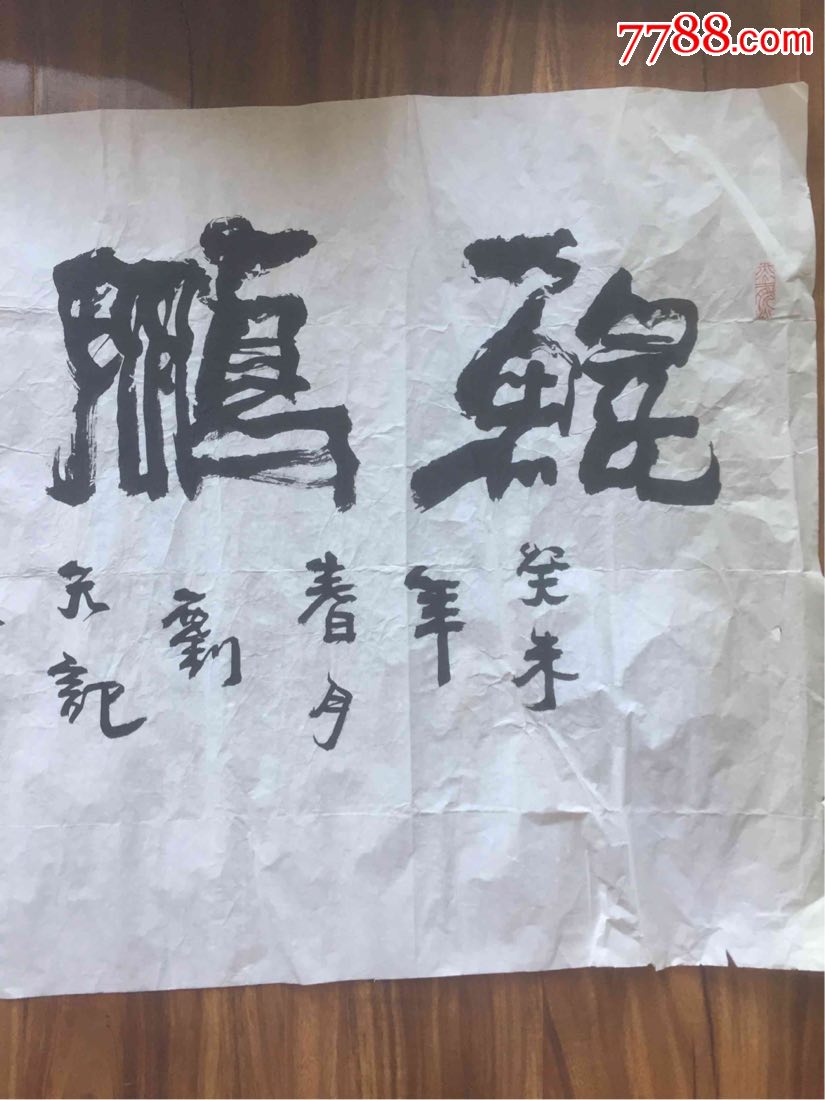 7788.com
鯤鵬
癸未
年
春月
劉
記